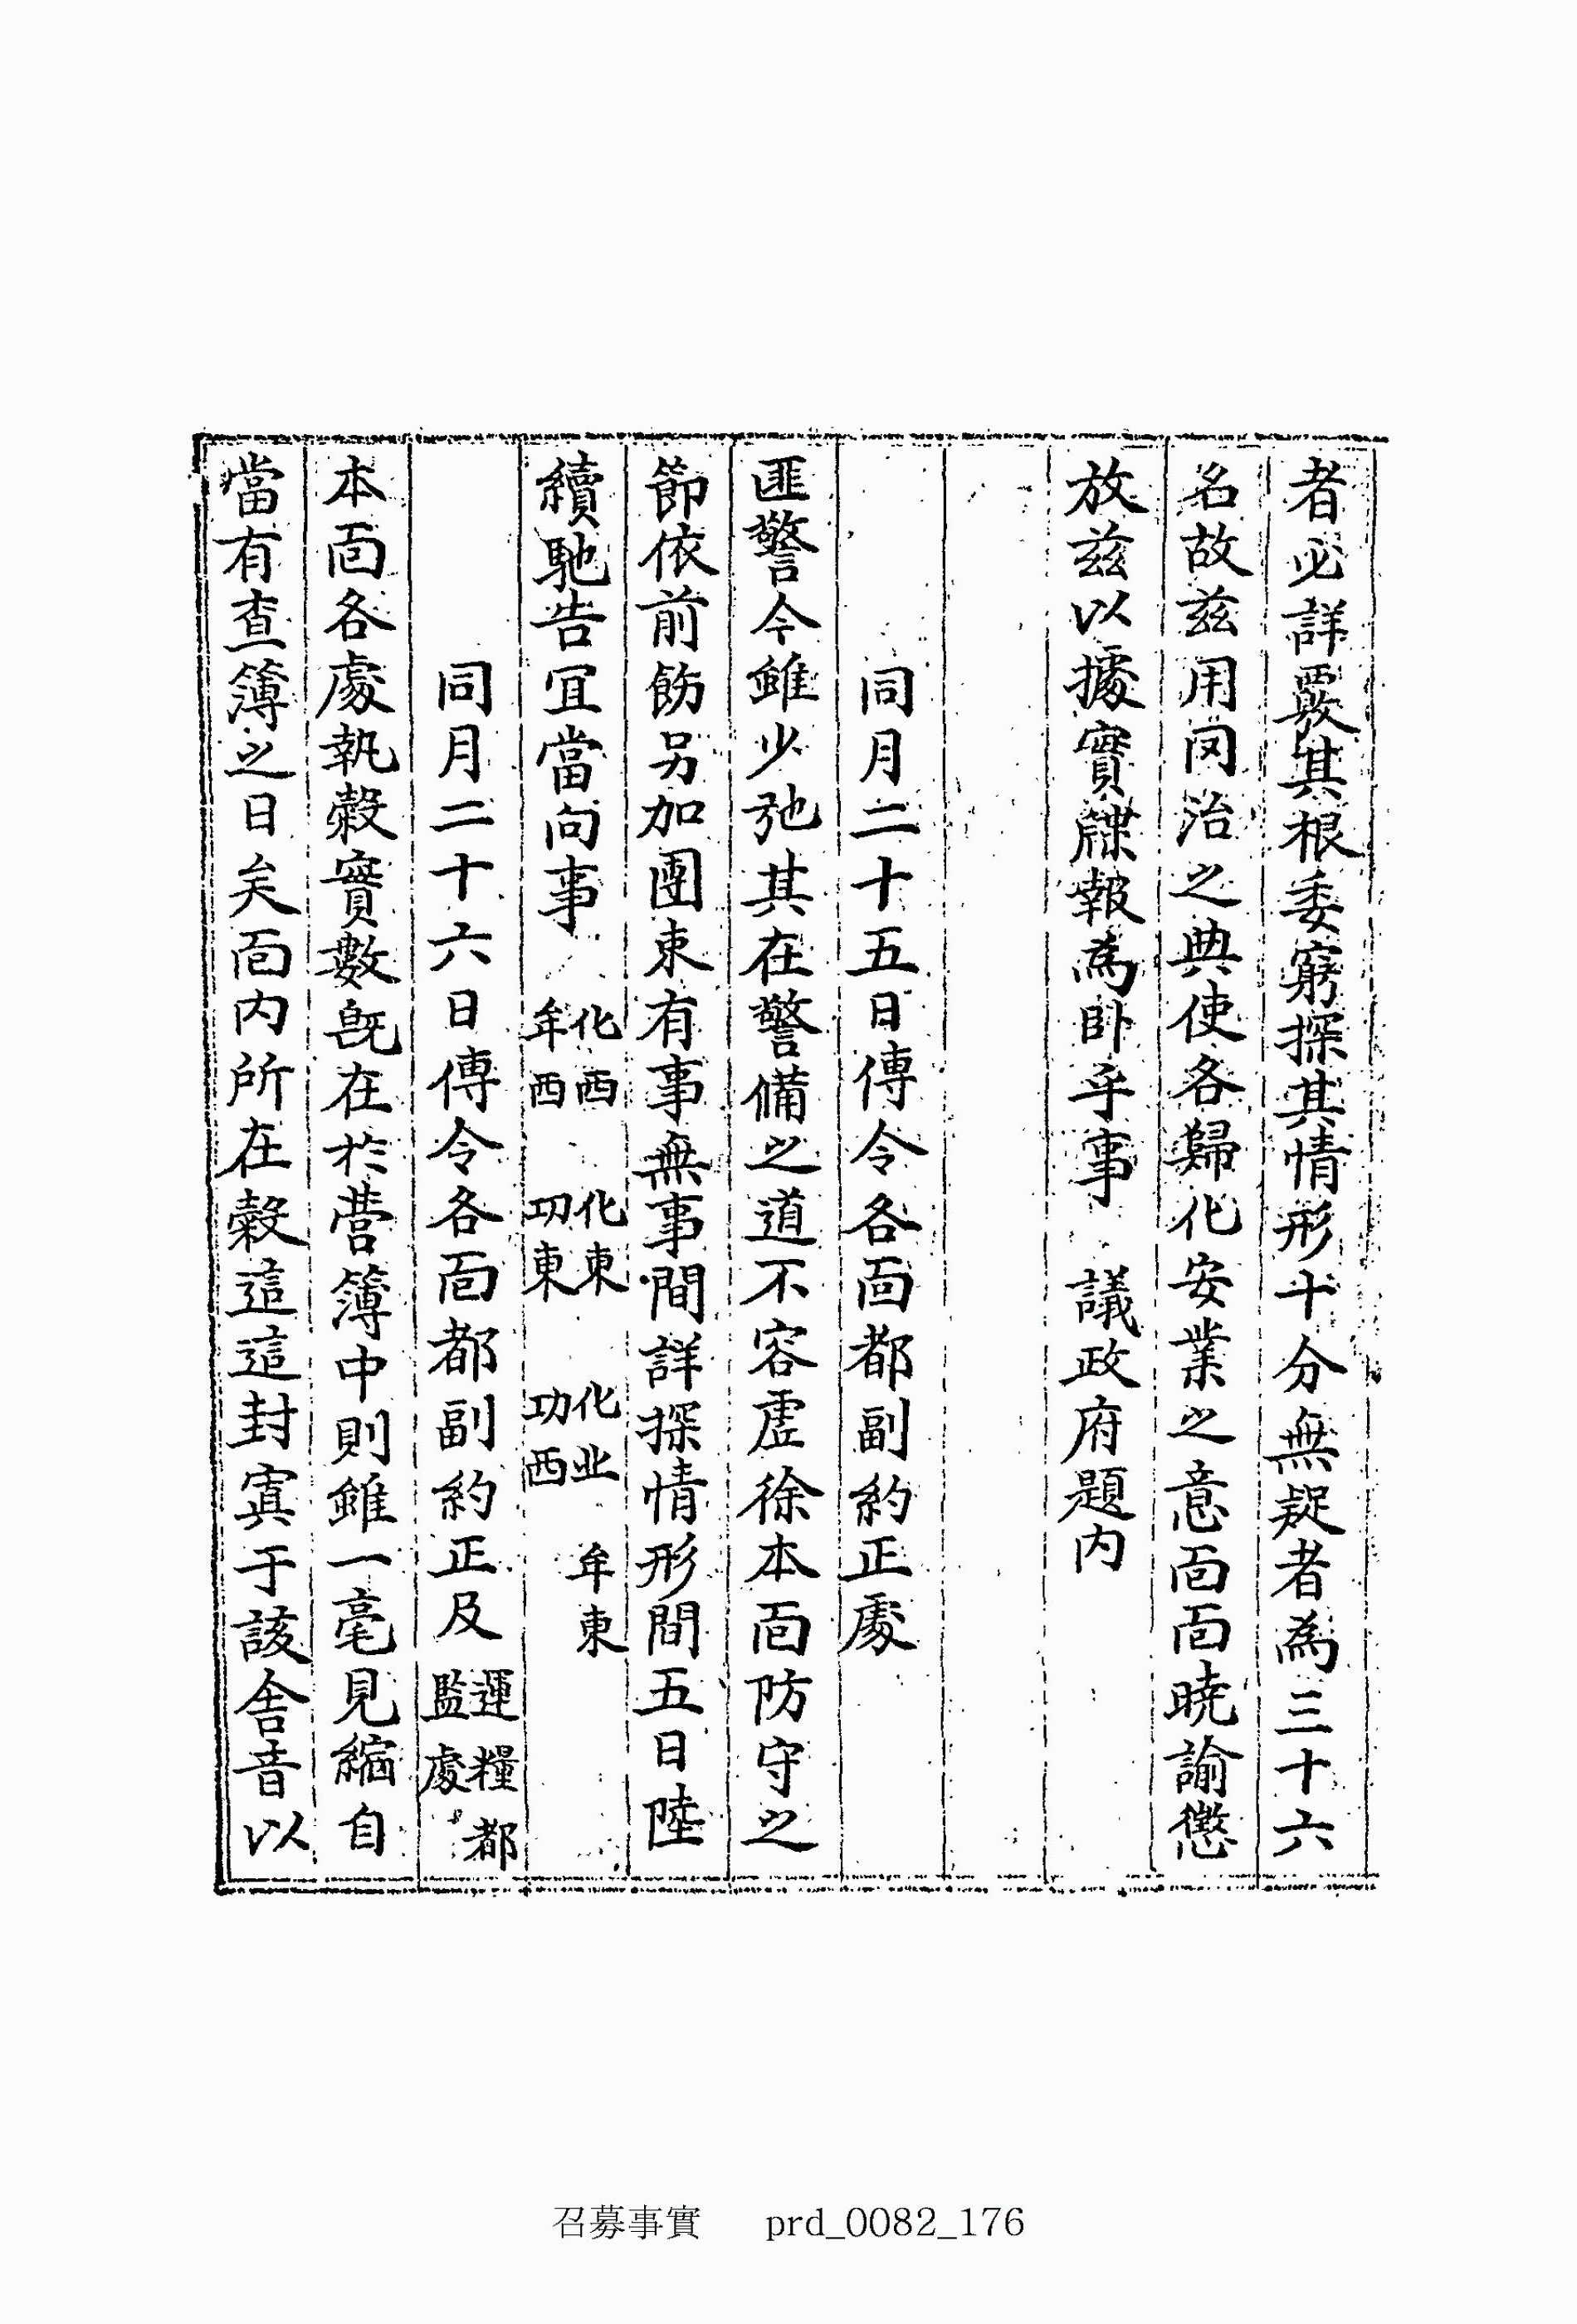 者必詳覈其根委窮探其情形十分無疑者爲三十六
名故玆用罔治之典使各歸化安業之意面面曉諭懲
放玆以據實牒報爲臥乎事 議政府題內
同月二十五日傳令各面都副約正處
匪警今雖少弛其在警備之道不容虛徐本面防守之
節依前飭另加團束有事無事間詳探情形間五日陸
續馳告宜當向事 化西 化東 化北 牟東
牟西 功東 功西
同月二十六日傳令各面都副約正及運糧都
監處
本面各處執穀實數旣在於營簿中則雖一毫見縮自
當有查簿之日矣面內所在穀這這封寘于該舍音以
召募事實 prd_0082_176